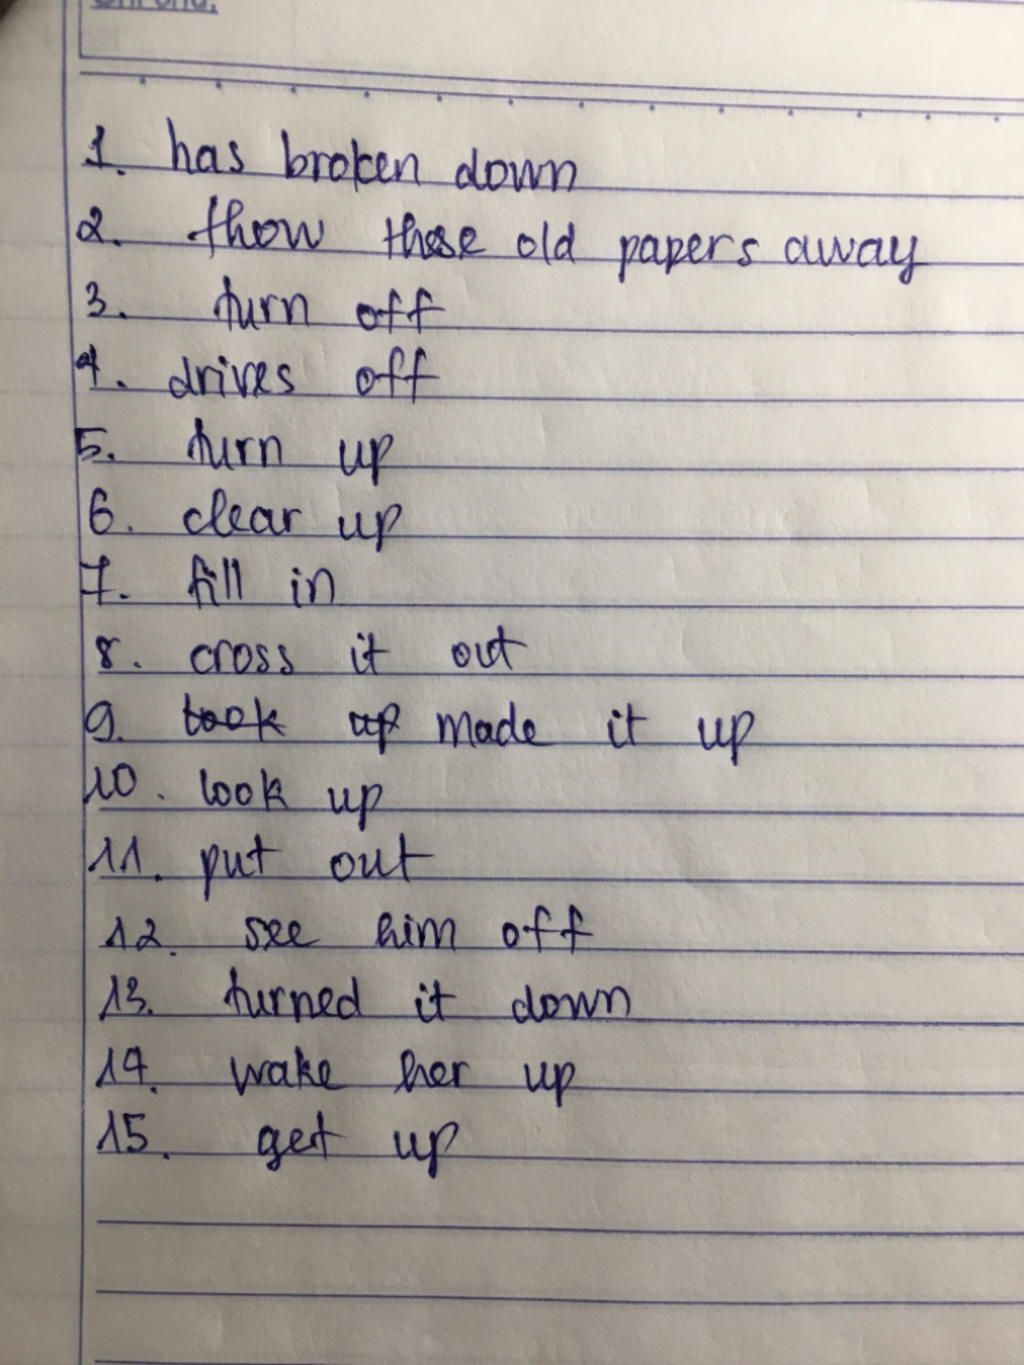 1. has broken down
2. thow these old papers away
3. turn off
4. drives off
5. turn up
6. clear up
7. fill in
8. cross it out
9. took up made it up
10. look up
11. put out
12. see him off
13. turned it down
14. wake her up
15. get up